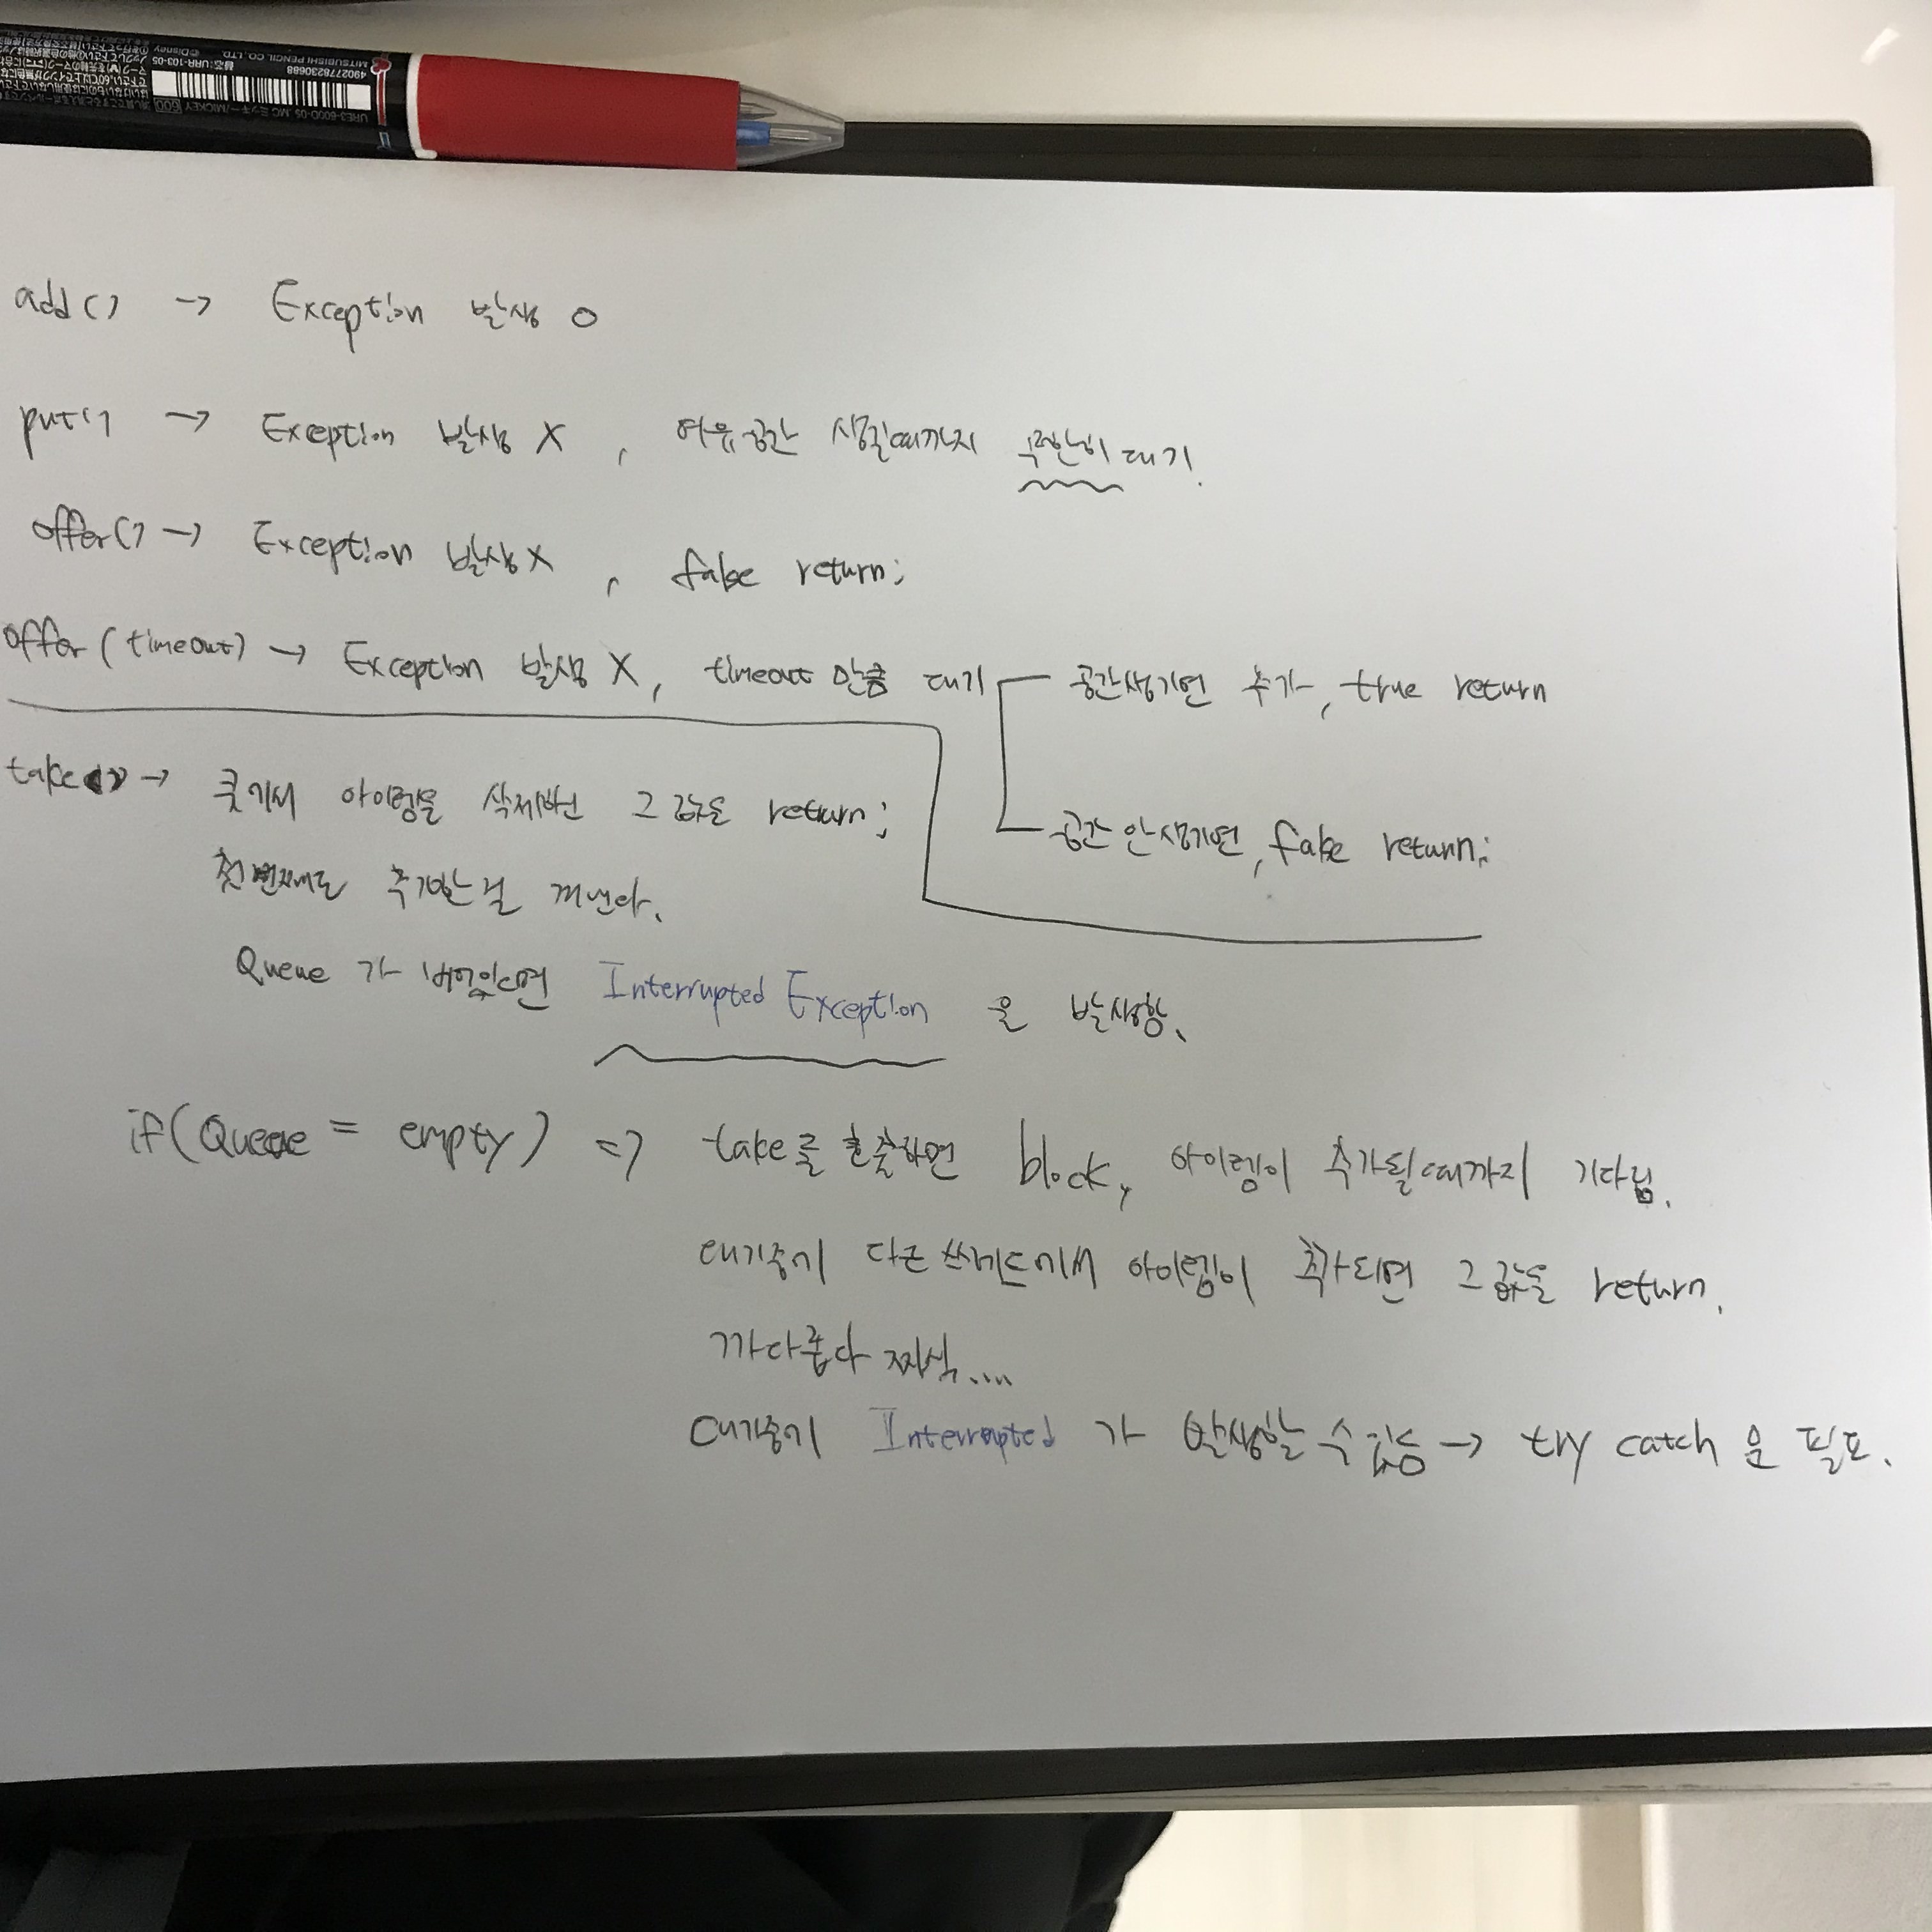 MITSUBISHI PENCIL CO., LTD. ©Disney
4902778230688
URE3-600D-05 MC ミッキー/MICKEY 600
add() → Exception 발생 O
put() → Exception 발생 X , 여유공간 생길때까지 무한히 대기.
offer() → Exception 발생 X , false return;
offer(timeout) → Exception 발생 X, timeout 만큼 대기
공간생기면 추가, true return
공간 안생기면, false return;
take() → 큐에서 아이템을 삭제하면 그 값을 return;
첫번째로 추가하는걸 꺼낸다.
Queue 가 비어있으면 Interrupted Exception 을 발생함.
if(Queue = empty) => take를 호출하면 block, 아이템이 추가될때까지 기다림.
대기중에 다른 쓰레드에서 아이템이 추가되면 그 값을 return.
까다롭다 짜식....
대기중에 Interrupted 가 발생할 수 있음 → try catch 은 필요.